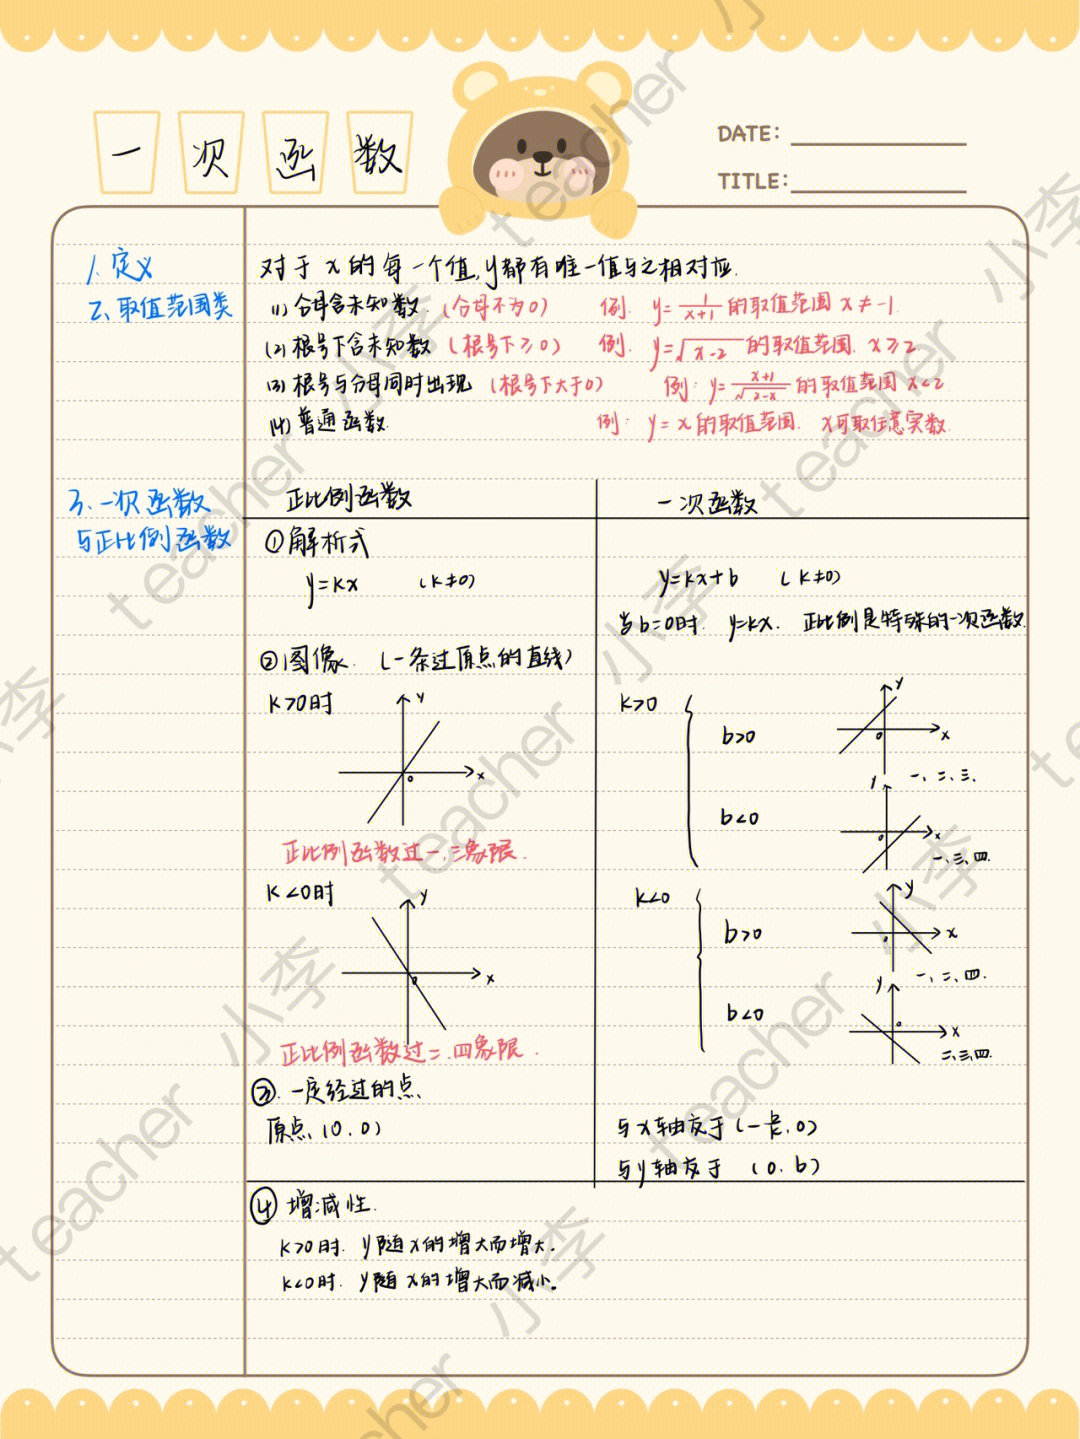 一次函数
DATE:
TITLE:
1. 定义
对于 x 的每一个值, y都有唯一值与之相对应.
2. 取值范围类
(1) 分母含未知数. (分母不为0) 例. y=1/(x+1) 的取值范围 x≠-1.
(2) 根号下含未知数 (根号下≥0) 例. y=√(x-2) 的取值范围. x≥2.
(3) 根号与分母同时出现 (根号下大于0) 例: y=(x+1)/√(2-x) 的取值范围 x<2
(4) 普通函数. 例: y=x 的取值范围. x可取任意实数.
3. 一次函数
与正比例函数
正比例函数 一次函数
①解析式
y=kx (k≠0) y=kx+b (k≠0)
当b=0时. y=kx. 正比例是特殊的一次函数.
②图像. (一条过原点的直线)
k>0时
y
x
0
正比例函数过一.三象限.
k<0时
y
x
0
正比例函数过二.四象限.
k>0
b>0
y
x
0
一、二、三.
b<0
y
x
0
一、三、四.
k<0
b>0
y
x
0
一、二、四.
b<0
y
x
0
二、三、四.
③. 一定经过的点.
原点 (0,0) 与x轴交于(-b/k, 0)
与y轴交于 (0, b)
④ 增减性.
k>0时. y随x的增大而增大.
k<0时. y随x的增大而减小。
teacher 小李